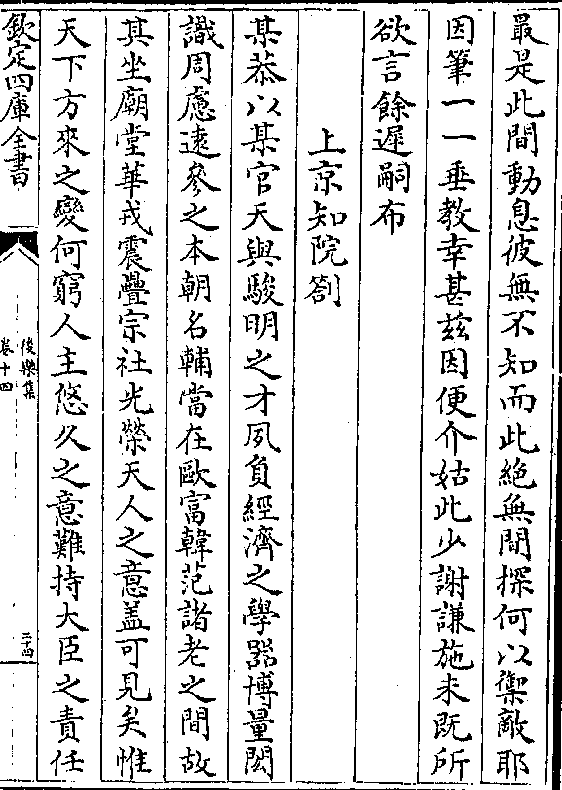 最是此間動息彼無不知而此絶無間探何以禦敵耶
因筆一一垂教幸甚兹因便介姑此少謝謙施未既所
欲言餘遲嗣布
上京知院劄
某恭以某官天與駿明之才夙負經濟之學器博量閎
識周慮遠參之本朝名輔當在歐富韓范諸老之間故
其坐廟堂華戎震疊宗社光榮天人之意盖可見矣惟
天下方來之變何窮人主悠久之意難持大臣之責任
欽定四庫全書
後樂集
卷十四
二十四